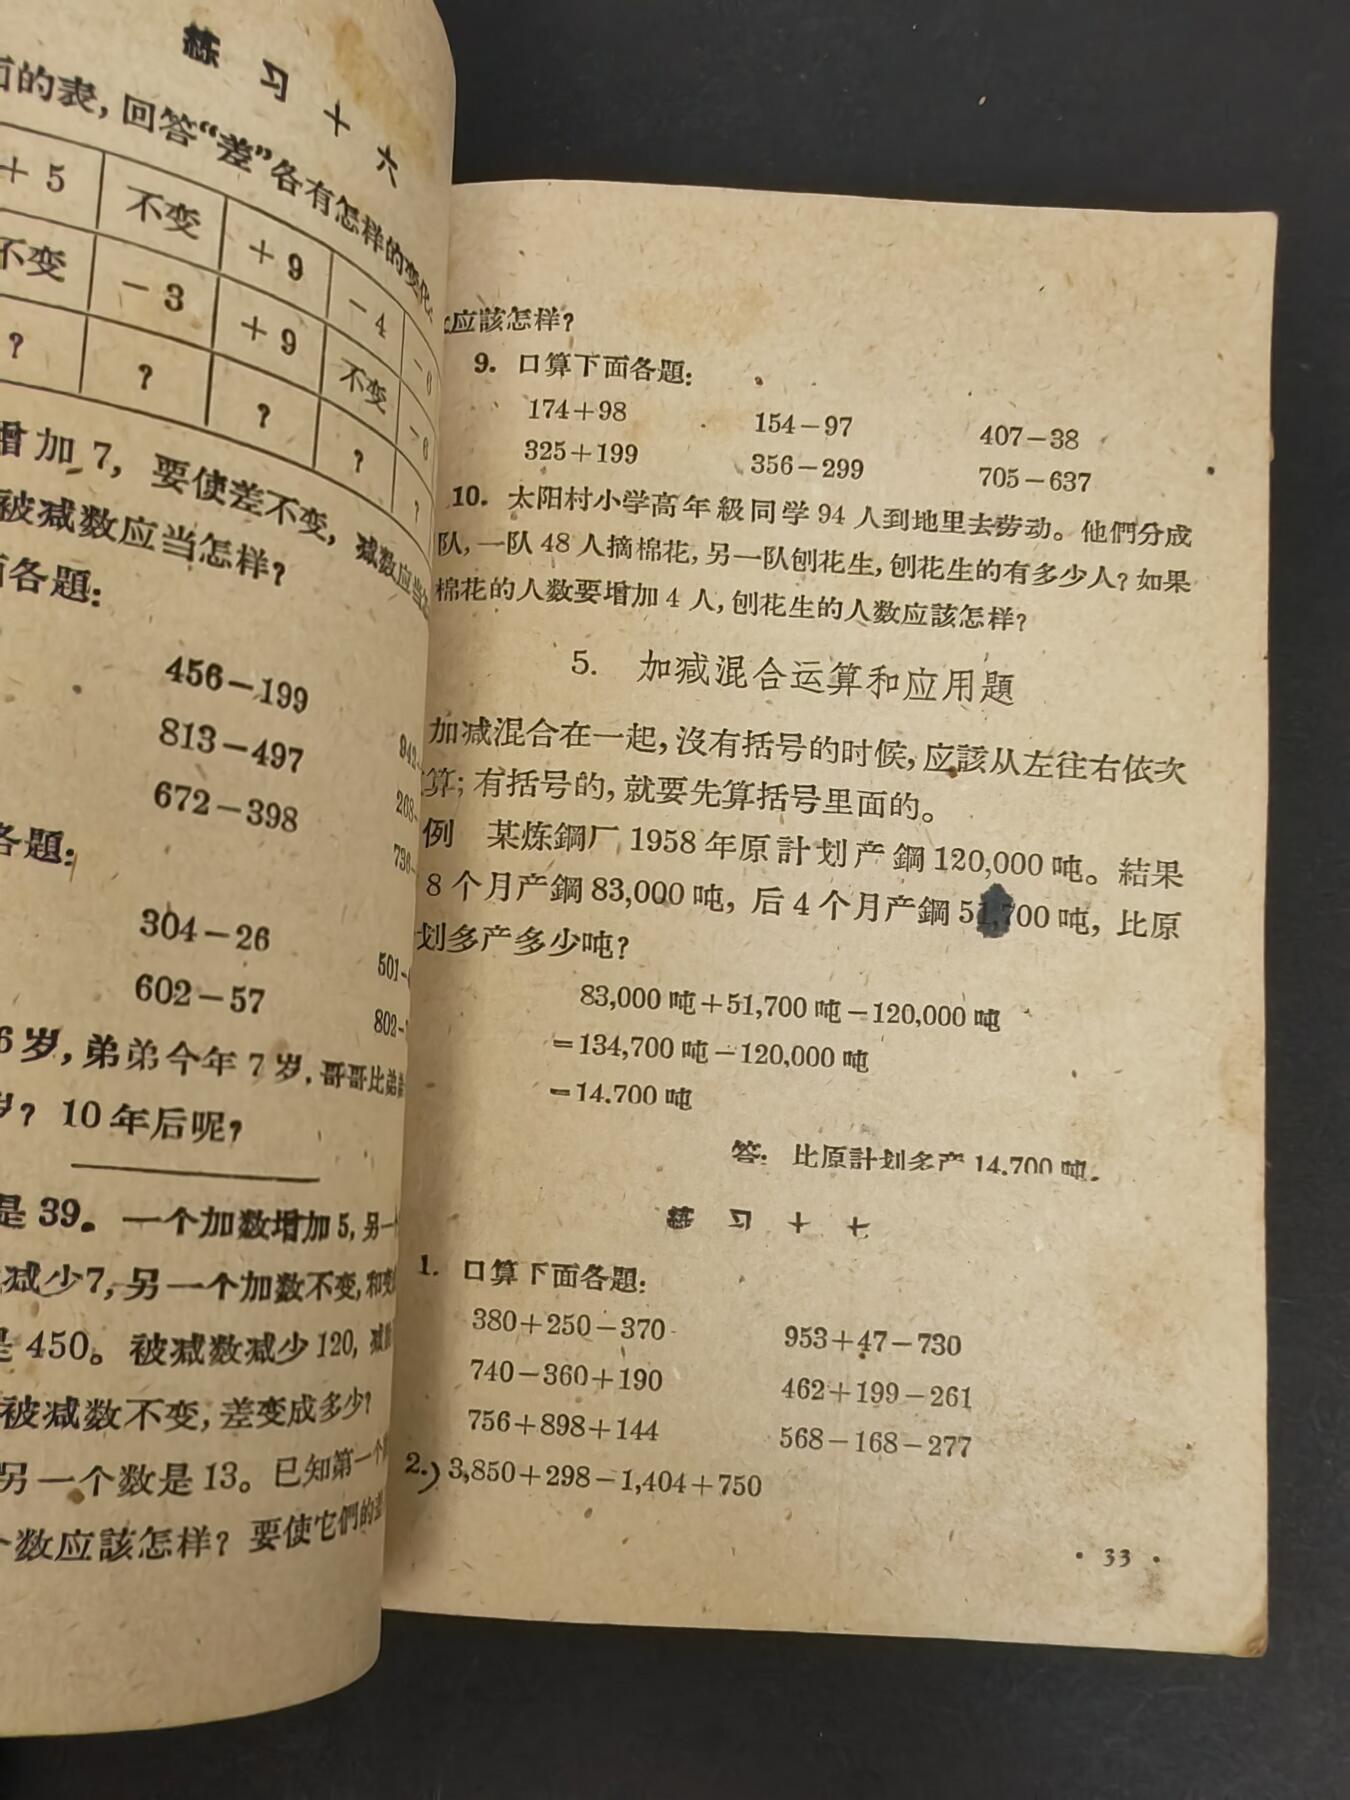 练习十六
面的表，回答“差”各有怎样的变化：
+5 不变 +9 -4 -6
不变 -3 +9 不变 -6
? ? ? ? ?
增加7，要使差不变，减数应当
被减数应当怎样？
各題：
456-199
813-497
672-398
各題：
304-26
602-57
6岁，弟弟今年7岁，哥哥比弟弟
岁？10年后呢？
是39。一个加数增加5，另一
减少7，另一个加数不变，和变
是450。被减数减少120，减
被减数不变，差变成多少？
另一个数是13。已知第一个
个数应該怎样？要使它們的差
应該怎样？
9. 口算下面各題：
174+98 154-97 407-38
325+199 356-299 705-637
10. 太阳村小学高年級同学94人到地里去劳动。他們分成
队，一队48人摘棉花，另一队刨花生，刨花生的有多少人？如果
棉花的人数要增加4人，刨花生的人数应該怎样？
5. 加减混合运算和应用題
加减混合在一起，沒有括号的时候，应該从左往右依次
算；有括号的，就要先算括号里面的。
例 某炼鋼厂1958年原計划产鋼120,000吨。結果
8个月产鋼83,000吨，后4个月产鋼51,700吨，比原
划多产多少吨？
83,000吨+51,700吨-120,000吨
=134,700吨-120,000吨
=14.700吨
答：比原計划多产14.700吨。
练习十七
1. 口算下面各題：
380+250-370 953+47-730
740-360+190 462+199-261
756+898+144 568-168-277
2. 3,850+298-1,404+750
· 33 ·